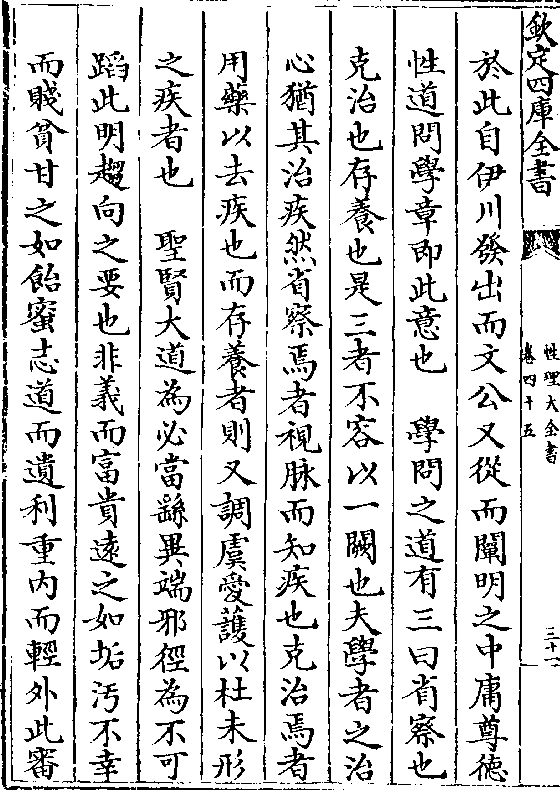 欽定四庫全書
性理大全書
卷四十五
三十一
於此自伊川發出而文公又從而闡明之中庸尊德
性道問學章即此意也　學問之道有三曰省察也
克治也存養也是三者不容以一闕也夫學者之治
心猶其治疾然省察焉者視脉而知疾也克治焉者
用藥以去疾也而存養者則又調虞愛護以杜未形
之疾者也　聖賢大道為必當繇異端邪徑為不可
蹈此明趨向之要也非義而富貴遠之如垢汚不幸
而賤貧甘之如飴蜜志道而遺利重内而輕外此審